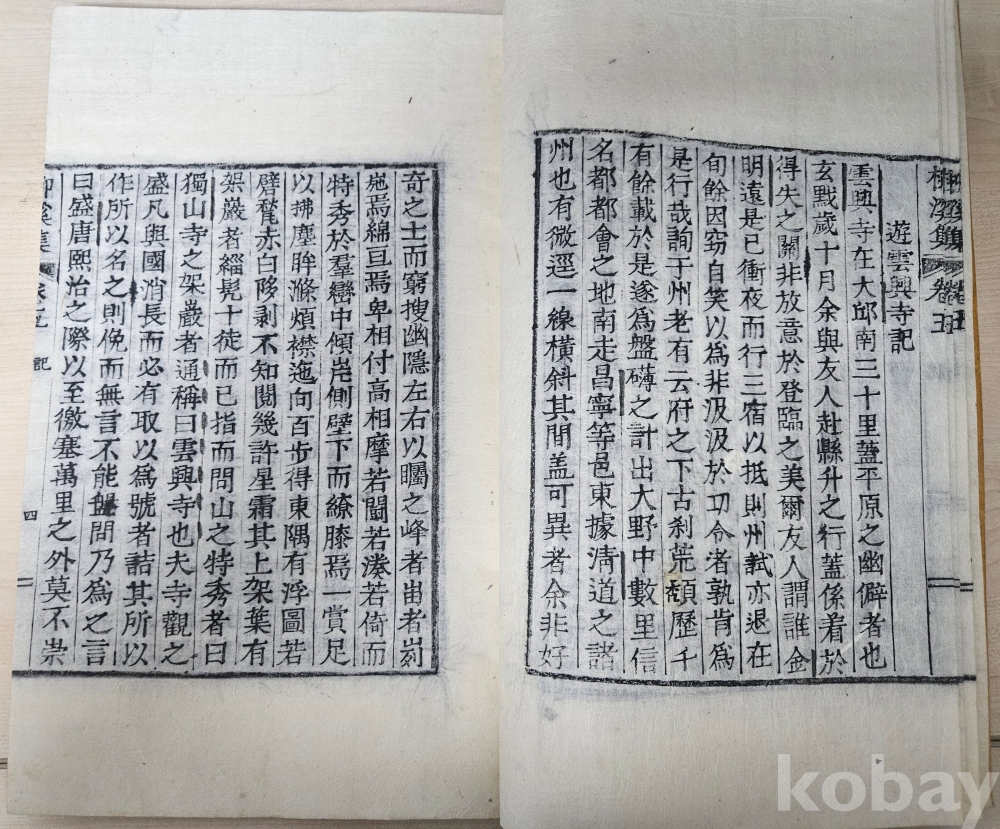 柳溪集 卷五
遊雲興寺記
雲興寺在大邱南三十里蓋平原之幽僻者也
玄黓歲十月余與友人赴縣升之行蓋係着於
得失之關非放意於登臨之美爾友人謂誰金
明遠是已衝夜而行三宿以抵則州試亦退在
旬餘因窃自笑以爲非汲汲於功令者孰肯爲
是行哉詢于州老有云府之下古刹荒頹歷千
有餘載於是遂爲盤礴之計出大野中數里信
名都都會之地南走昌寧等邑東據淸道之諸
州也有微逕一線橫斜其間盖可異者余非好
奇之士而窮搜幽隱左右以矚之峰者岫者峛
崺焉綿亘焉卑相付高相摩若鬪若湊若倚而
特秀於羣巒中傾崖側壁下而繚膝焉一賞足
以拂塵眸滌煩襟迤向百步得東隅有浮圖若
甓甃赤白陊剥不知閱幾許星霜其上架葉有
架巖者緇髡十徒而已指而問山之特秀者曰
獨山寺之架巖者通稱曰雲興寺也夫寺觀之
盛凡與國消長而必有取以爲號者詰其所以
作所以名之則俛而無言不能盤問乃爲之言
曰盛唐熙治之際以至徼塞萬里之外莫不崇
柳溪集 卷之五 記 四
kobay